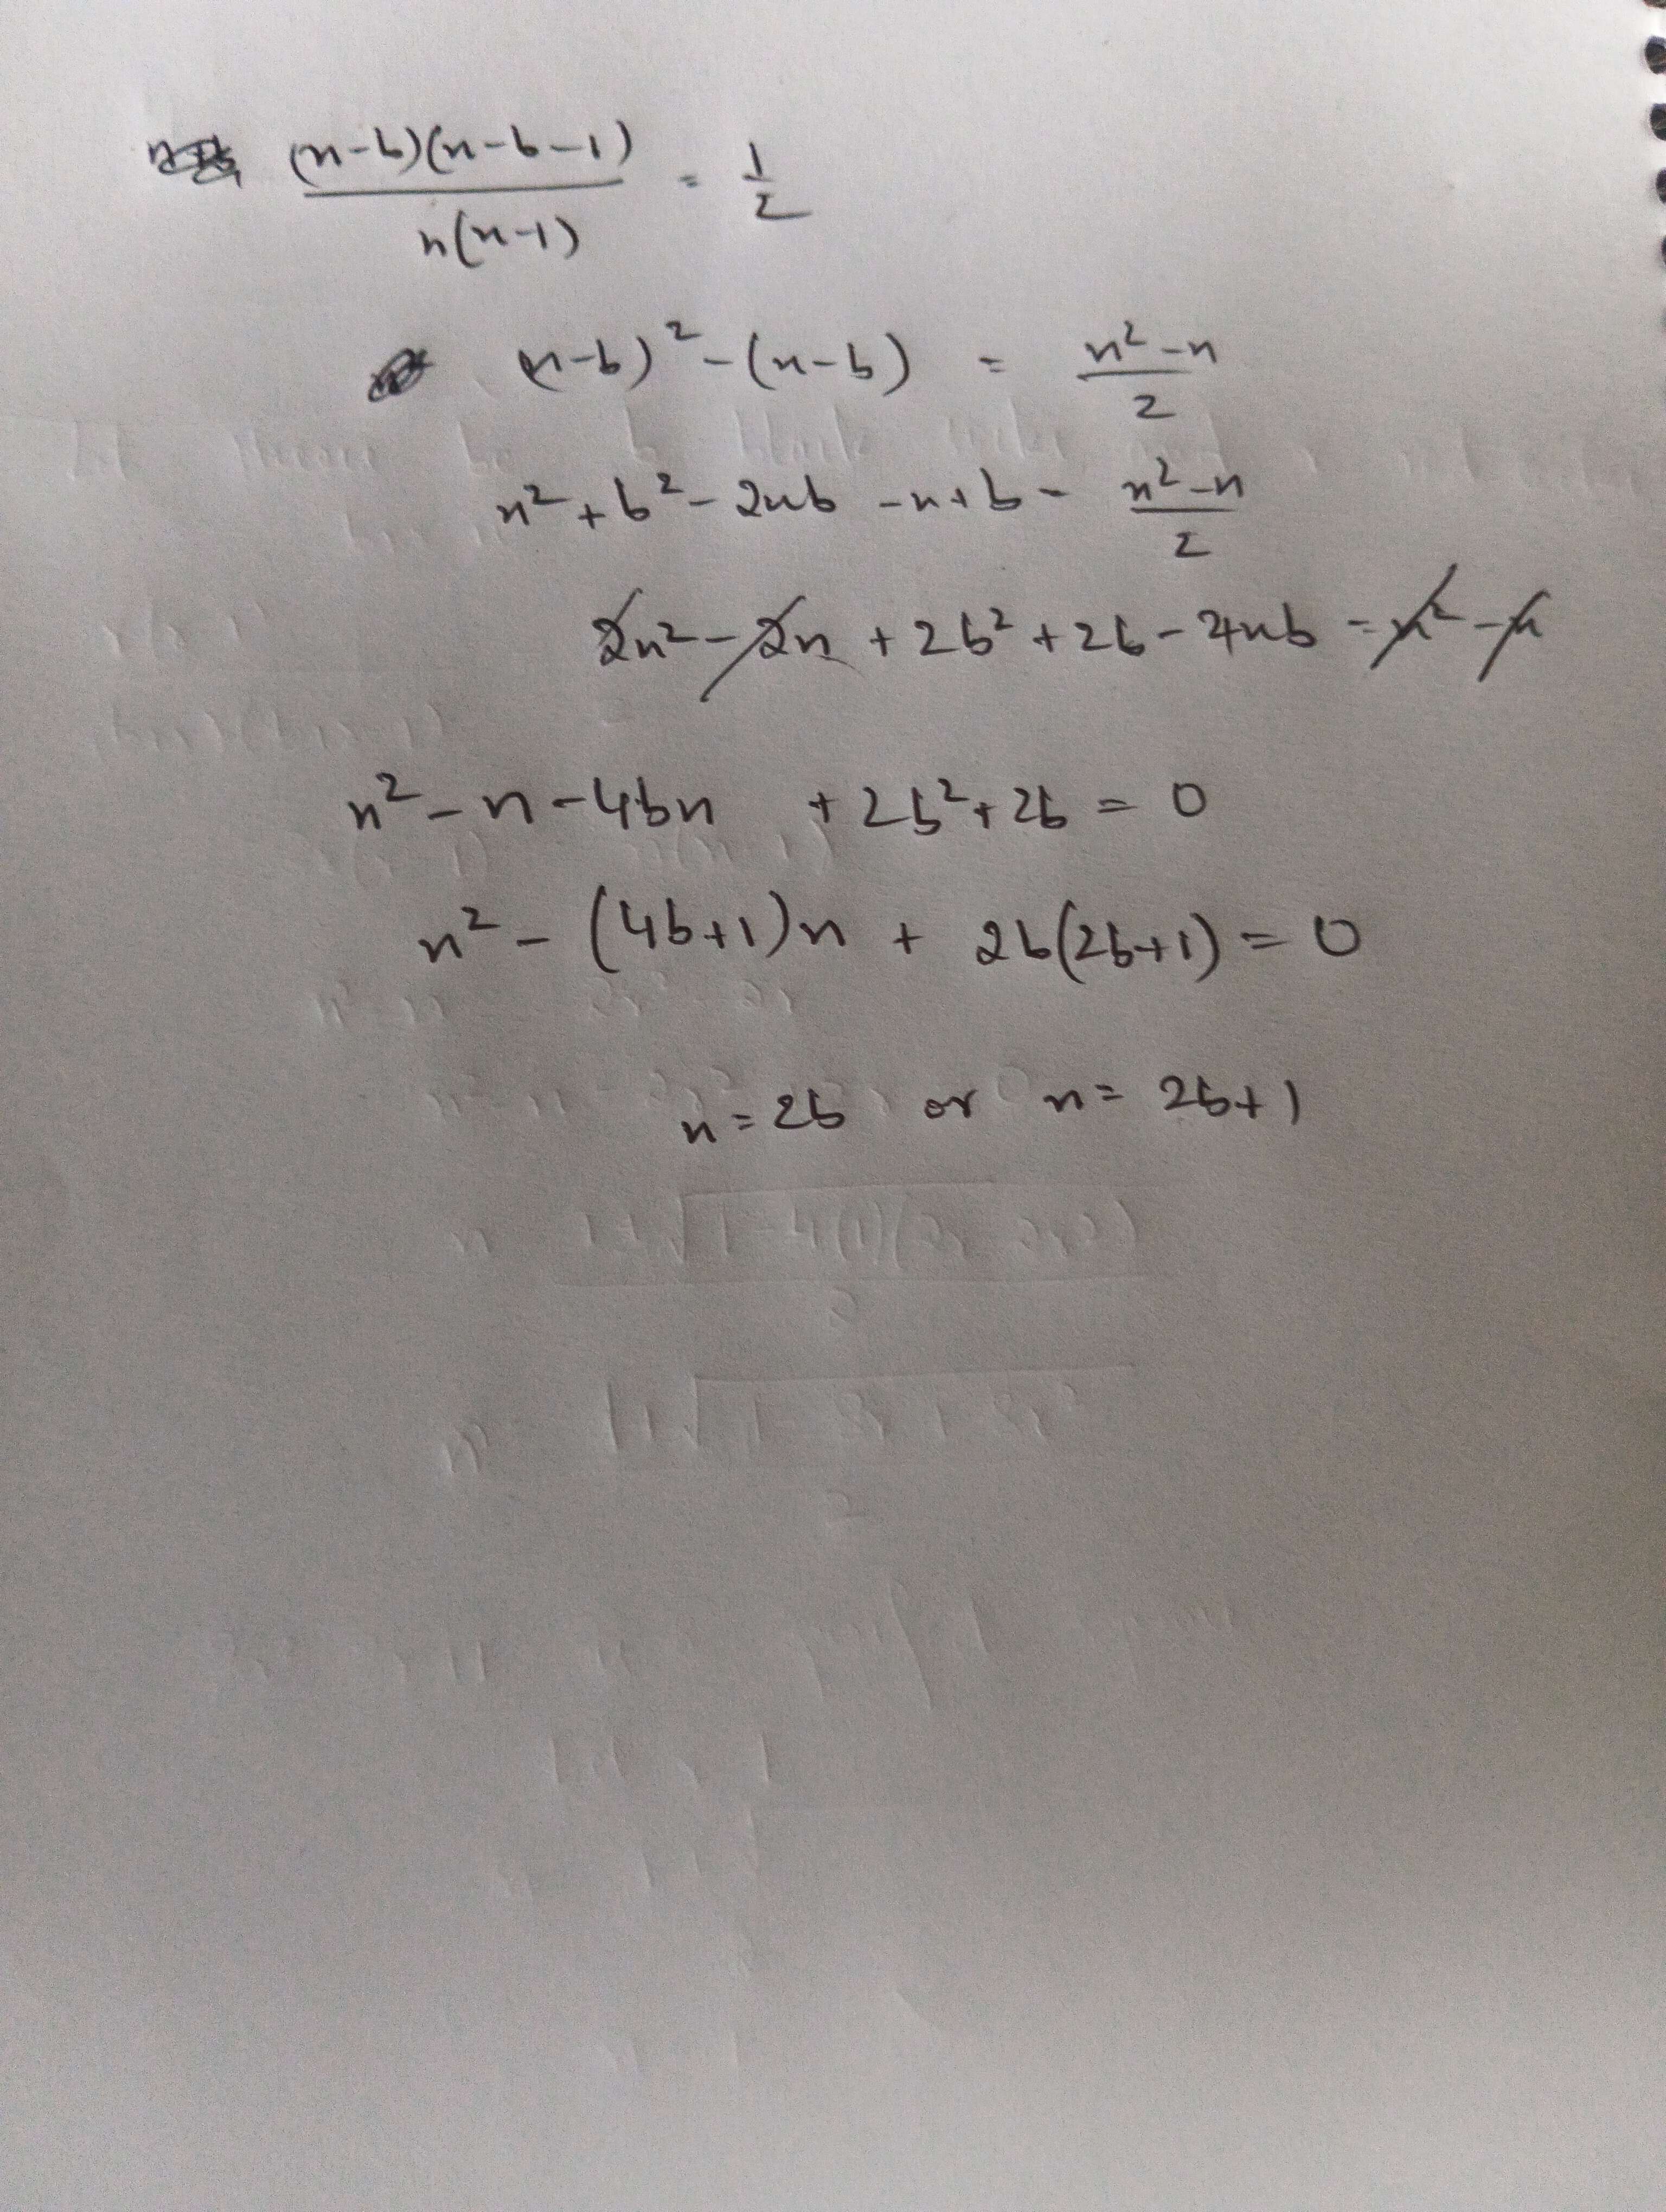 (n-b)(n-b-1) / n(n-1) = 1/2
(n-b)² - (n-b) = (n² - n)/2
n² + b² - 2nb - n + b = (n² - n)/2
2n² - 2n + 2b² + 2b - 4nb = n² - n
n² - n - 4bn + 2b² + 2b = 0
n² - (4b+1)n + 2b(2b+1) = 0
n = 2b or n = 2b+1